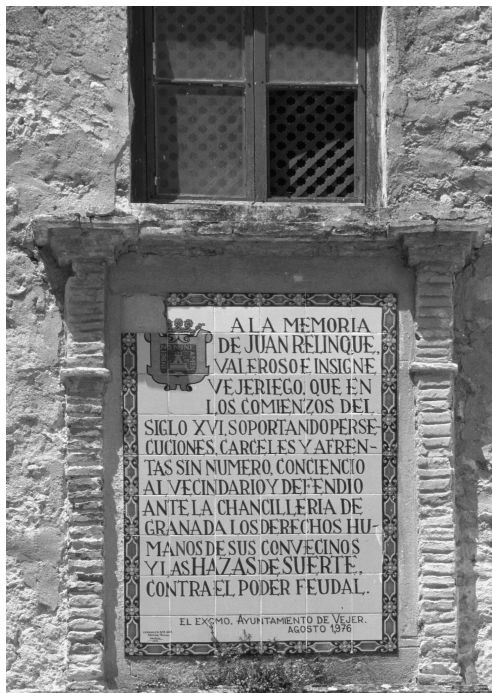 A LA MEMORIA
DE JUAN RELINQUE,
VALEROSO E INSIGNE
VEJERIEGO, QUE EN
LOS COMIENZOS DEL
SIGLO XVI, SOPORTANDO PERSE-
CUCIONES, CARCELES Y AFREN-
TAS SIN NUMERO, CONCIENCIO
AL VECINDARIO Y DEFENDIO
ANTE LA CHANCILLERIA DE
GRANADA LOS DERECHOS HU-
MANOS DE SUS CONVECINOS
Y LAS HAZAS DE SUERTE,
CONTRA EL PODER FEUDAL.
EL EXCMO. AYUNTAMIENTO DE VEJER.
AGOSTO 1,976